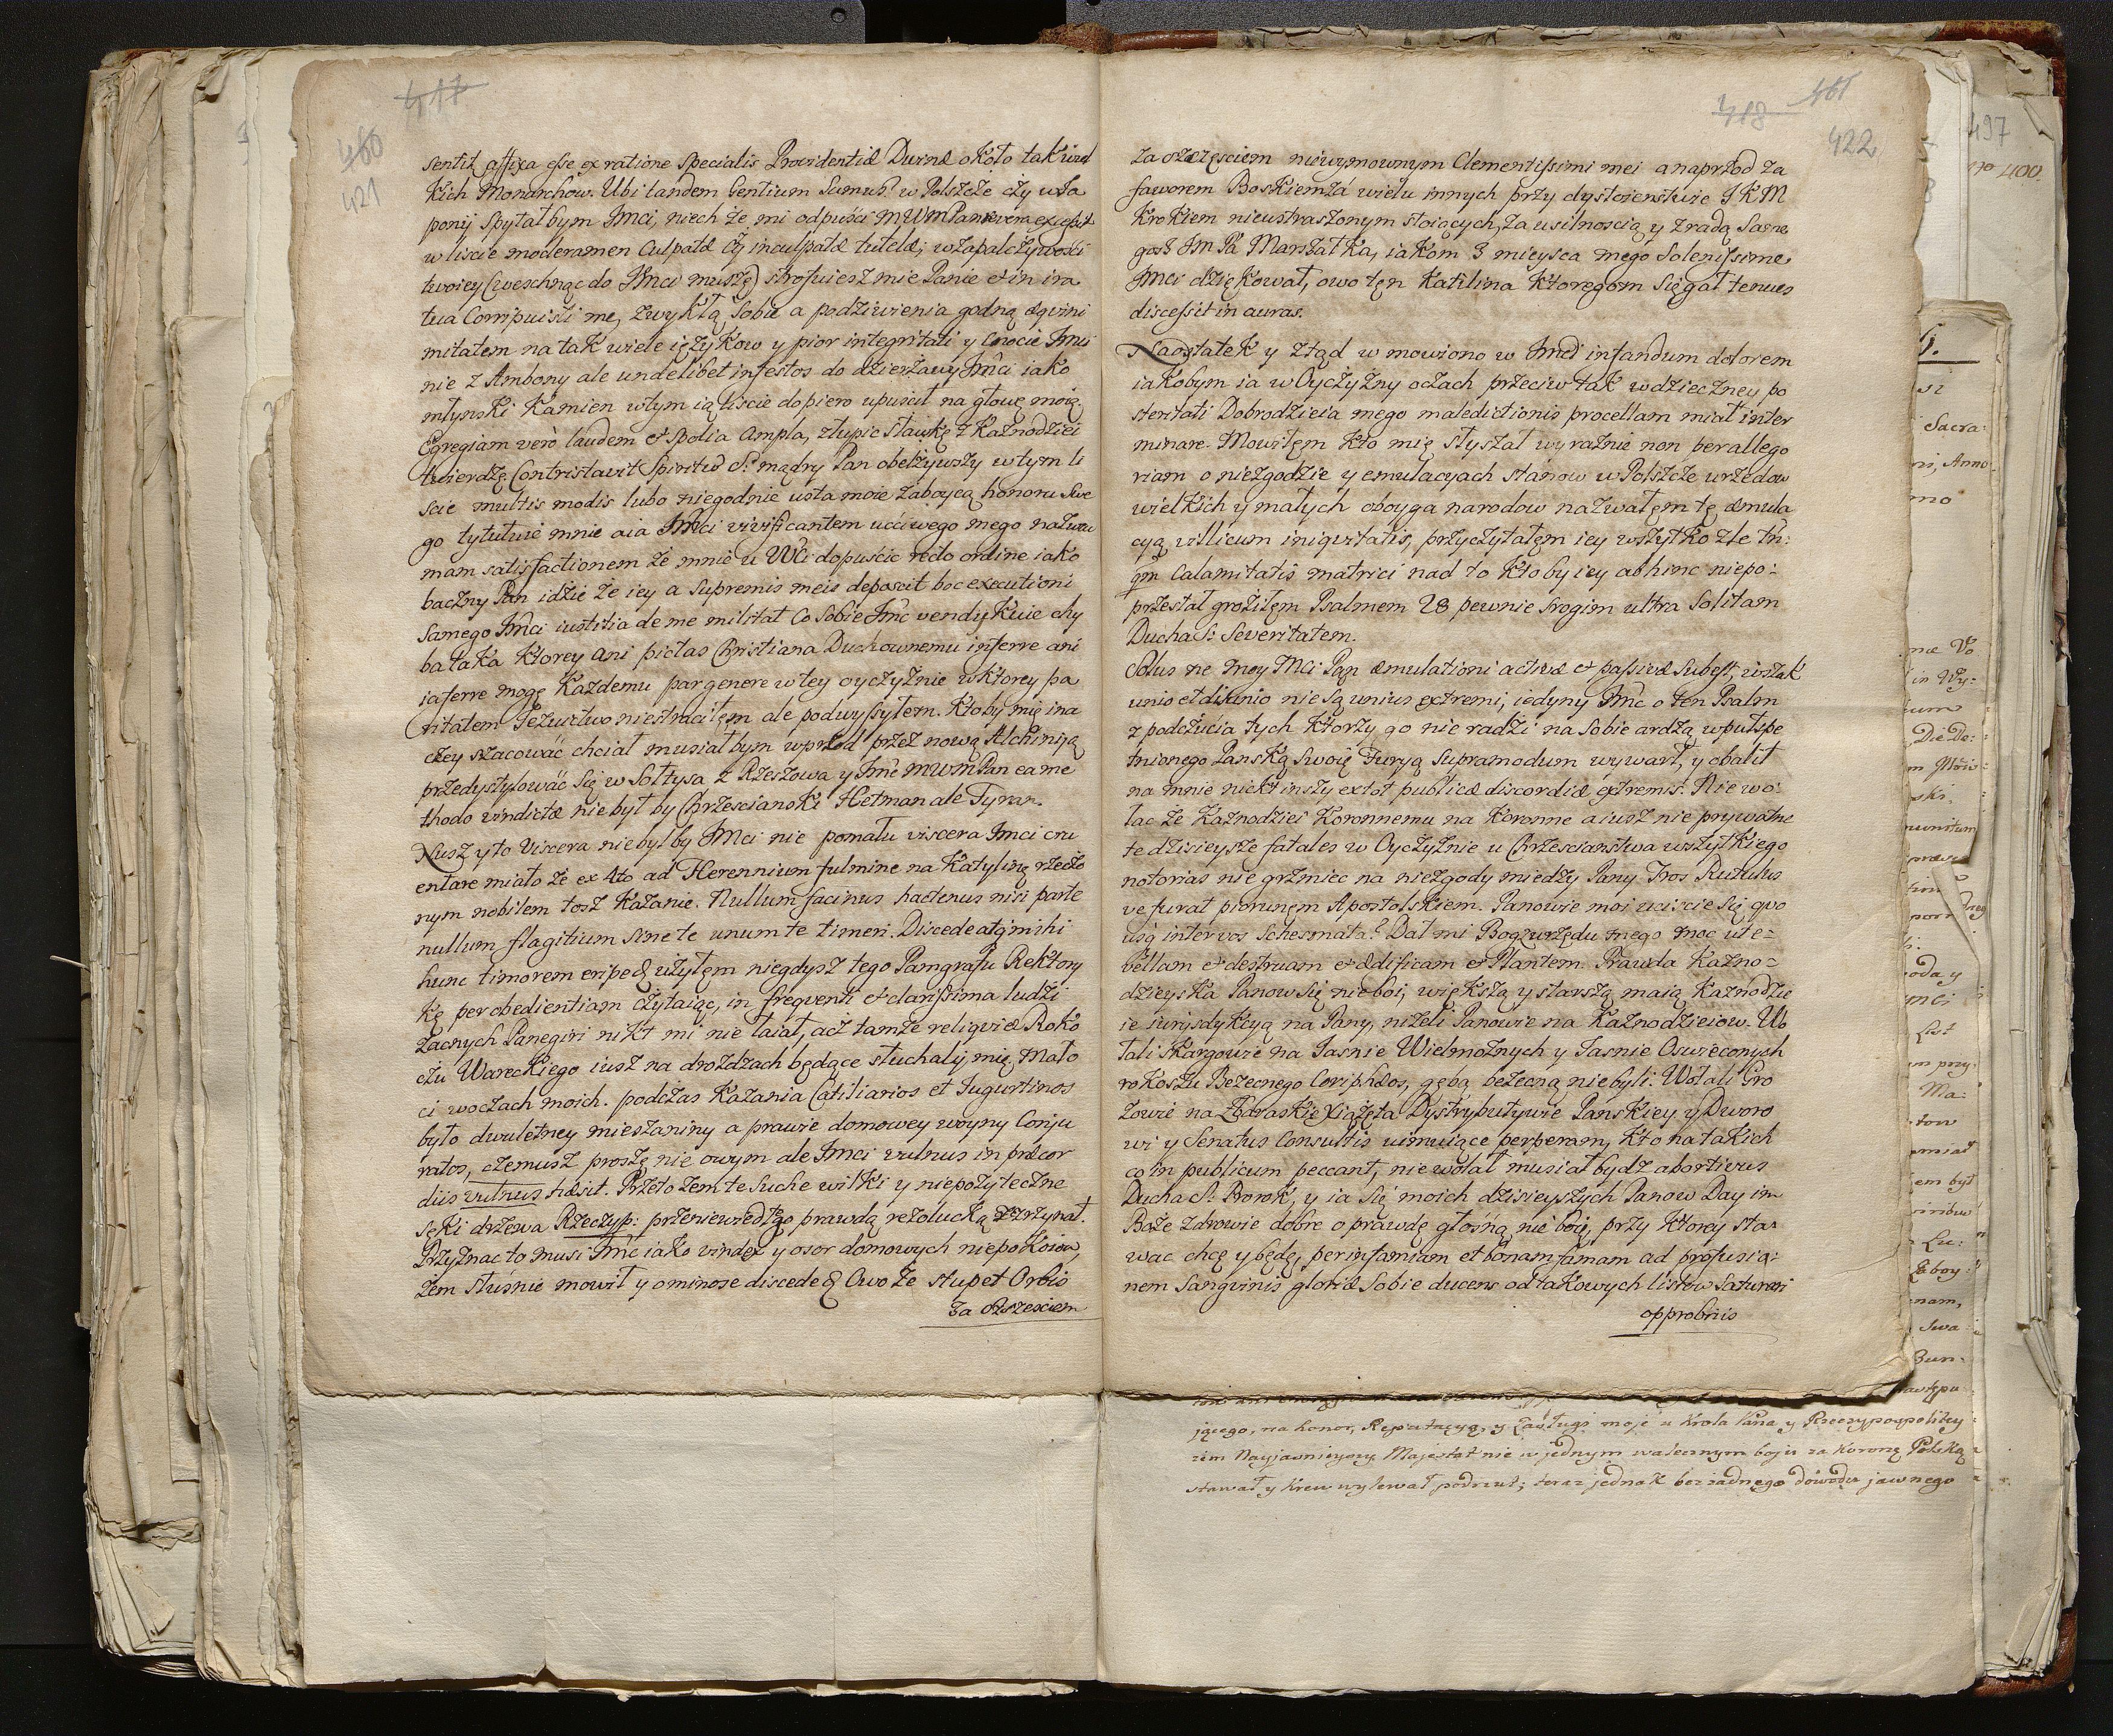 417
460
421
sentit affixa esse ex ratione specialis Providentiæ Divinæ około tak wiel
kich Monarchow. Ubi tandem Gentium Sumus? w Polszcze czy w Ja
ponij spytał bym Imci, niech że mi odpuści MWMPan
w liscie moderamen Culpatæ czy inculpatæ tutelæ; w zapalczywosci
twoiey (weschnąc do Imci muszę) strofuiesz mie Panie et in ira
tua Corripuisti me, zwykłą Sobie a podziwienia godną æqvini
mitatem na tak wiele ięzykow y pior integritati y Cnocie Imci
nie z Ambony ale undelibet infestos do dzierżawy Imci iako
młynski Kamien w tym ią liscie dopiero upuscił na głowę moię
Egregiam verò laudem et Spolia Ampla, złupic sławkę z Kaznodziei
twierdzę Contristavit Spiritū S: mądry Pan obelżywszy w tym li
scie multis modis lubo niegodnie usta moie zaboycą honoru Swe
go tytułuie mnie a ia Imci vivificantem ucciwego mego nazwać
mam satisfactionem że mnie u WCi dopuście recto ordine iako
baczny Pan idzie że iey a Supremis meis deposcit boc executioni
Samego Imci iustitia de me militat Co Sobie Imc vendykuie chy
ba taka Ktorey ani pietas Christiana Duchownemu inferre ani
ia ferre mogę Kazdemu par genere w tey oyczyżnie w ktorey pa
ritatem Iezuictwo nie straciłęm ale podwyssyłem. Ktoby mię ina
czey szacowác chciał musiał bym wprzod przez nową Alchimiją
przedystylowác Się w Sołtysa z Rzeszowa y Imc MWMPan ea me
thodo vindictæ nie był by Chrzescianski Hetman ale Tyran.
Nusz y to Viscera nie był by IMci nie pomału viscera Imci cru
entare miało że ex 4to ad Herennium fulmine na Katylinę rzeczo
nym nobilem tosz Kazanie. Nullum facinus hactenus nisi parte
nullum flagitium sine te unum te timeri. Discede atqṃ mihi
hunc timorem eripe & użyłęm niegdysz tego Pamgrafu Rektory
kę per obedientiam czytaiąc, in freqventi et clarissima ludzi
zacnych Panegiri nikt mi nie łaiał, acz tamże reliqviæ Roko
szu Wareckiego iusz na drozdzach będące słuchałÿ mię. Mało
ci w oczach moich. podczas Kazania Catiliarios et Iugurtinos
było dwuletney mieszaniny a prawie domowey woyny Conju
ratos, czemusz proszę nie owym ale Imci vulnus in præcor
diis vulnus hæsit. Przeto żem te Suche wilki y niepożyteczne
sęki drzewa Rzeczyp: przeniewiedłgo prawdą rezolucką zrzynał.
Przyznac to musi Imc iako vindex y osor domowych niepokoiow,
żem słusnie mowił y ominose discede & Owo że stupet Orbis
Za szszesciem
418
461
422
za szczęsciem niewymownym Clementissimi mei a naprzod za
faworem Boskiem zá wielu innych przy dystoienstwie I K M
Krokiem nieustraszonym stoiących, za usilnoscią y zradą Same
gosz Im Pa Marszałka, iakom z mieysca mego Solenissime
Imci dziękował, owo ten Katilina Ktoregom Sięgał tenues
discessit in auras.
Naostatek y ztąd w mowiono w Imci infandum dolorem
iakobym ia w Oyczyżny oczach przeciw tak wdzieczney po
steritati Dobrodzieia mego maledictionis procellam miał inter
minare. Mowiłęm kto mię słyszał wyraznie non per allego
riam o niezgodzie y emulacyach stanow w Polszcze urzedow
wielkich y małych oboyga narodow nazwałęm tę æmula
cyą villicum iniqvitatis, przyczytałęm iey wszytko złe tn:
qm Calamitatis matrici nad to Kto by iey abhinc niepo:
przestał groziłęm Psalmem 28 pewnie srogim ultra Solitam
Ducha S: Severitatem.
Solus ne moy Mci Pan æmulationi activæ et passivæ Subest, wszak
unio et disunio nie są unius extremi, iedyny Imc o ten Psalm
z podczucia tych Ktorzy go nie radzi na Sobie ardzą wpułspe
tnionego Panską Swoię Furyą Supramodum wywarł, y obalił
na mnie niekt inszy extot publicæ discordiæ extremis. Nie wo:
łac że Kaznodziei Koronnemu na Koronne a iusz nie prywatne
te dzisieysze fatales w Oyczyżnie u Chrzescianstwa wszytkiego
notorias nie grzmiec na niezgody miedzy Pany Tros Rutulus
ve furat piorunęm Apostolskiem. Panowie moi uciście Się qvo
usq inter vos Schesmata? Dał mi Bog z urzędu mego moc ut e=
vellam et destruam et ædificam et Plantem. Prawda Kazno=
dzieyska Panow Się nie boi, większą y starszą maią Kaznodzie
ie iurysdykcyą na Pany, niżeli Panowie na Kaznodzieiow. Wo
łali Skargowie na Jasnie Wielmożnych y Jasnie Oswieconych
rokoszu Bezecnego Coriphæos, gębą bezecną nie byli. Wołali Gro
zowie na Zbaraskie Xiążęta Dystrybutywie Panskiey y Dworo
wi y Senatus Consultis uimuiące perperam, Kto na takich
co in publicum peccant, nie wołał musiał bydz abortivus
Ducha S: Prorok, y ia Się moich dzisieyszych Panow Day im
Boże zdrowie dobre o prawdę głosną nie boię, przy Ktorey sta=
wac chcę y będę, per infamiam et bonam famam ad profusio:
nem Sangvinis gloriæ Sobie ducens od takowych listow Saturari
opprobriis
jącego, na honor, Reputacyą, y Zasługi moje u Krola Pana y Rzeczypospolitey
zem Nayjasnieyszy Majestat nie w jednym walecznym boju za Koronę Polską
stawał y Krew wylewał podrzut; teraz jednak bez żadnego dowodu jawnego
497
400